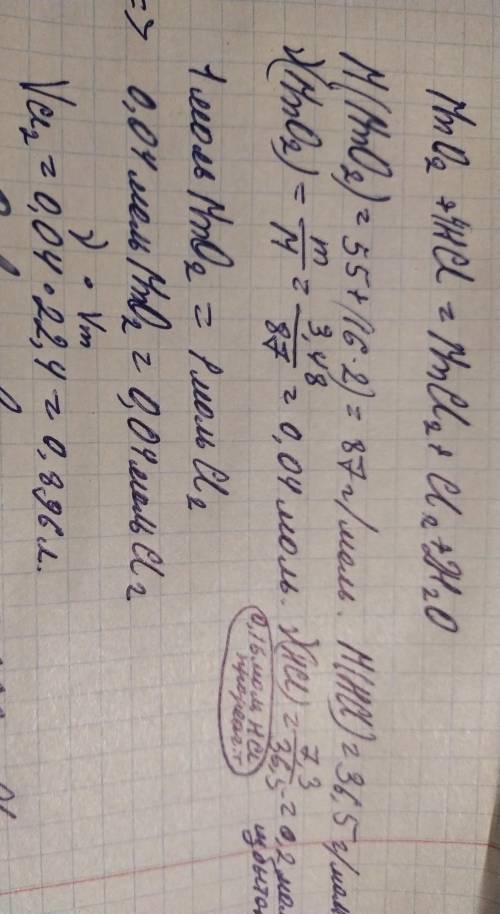 MnO₂ + 4HCl = MnCl₂ + Cl₂ + 2H₂O
M(MnO₂) = 55 + (16·2) = 87 г/моль. M(HCl) = 36,5 г/моль
ν(MnO₂) = m/M = 3,48/87 = 0,04 моль. ν(HCl) = 7,3/36,5 = 0,2 мол
избыто
0,16 моль HCl
прореаг.
1 моль MnO₂ = 1 моль Cl₂
=> 0,04 моль MnO₂ = 0,04 моль Cl₂
ν · Vm
VCl₂ = 0,04 · 22,4 = 0,896 л.